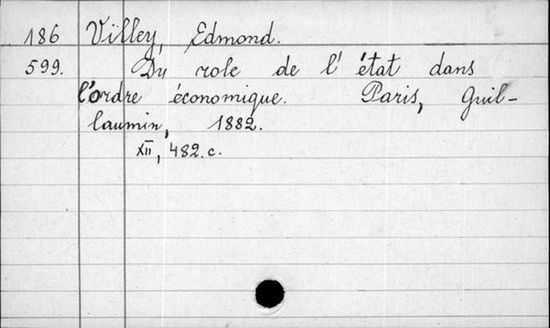 186 Villey, Edmond.
599. Du role de l' état dans
l'ordre économique. Paris, Guil-
laumin, 1882.
XII, 482. c.